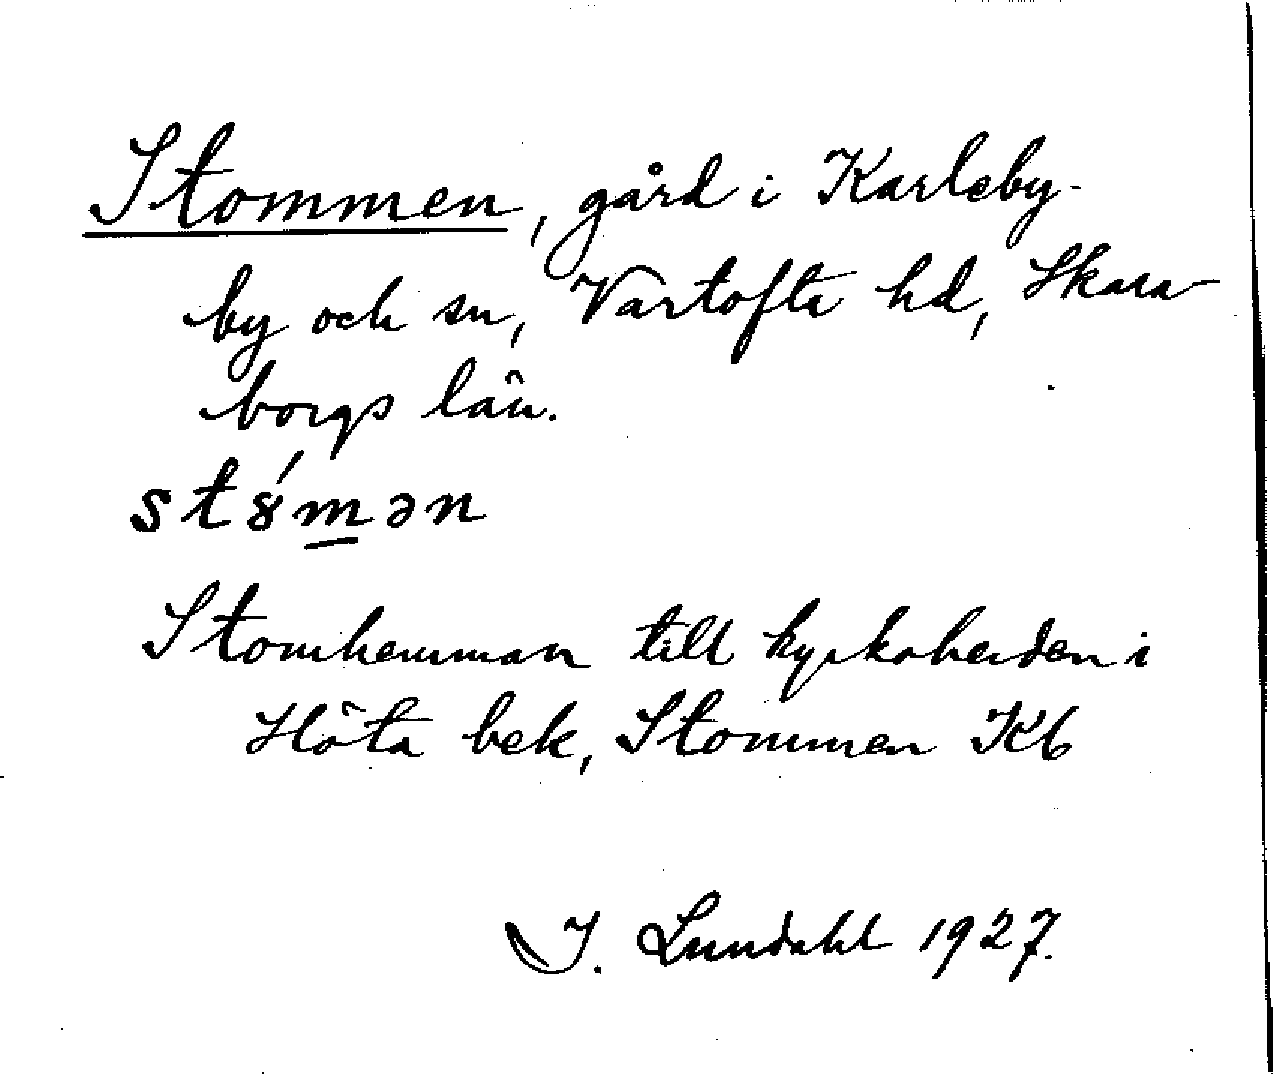 Stommen, gård i Karleby-
by och sn, Vartofta hd, Skara-
borgs län.
st8́mən
Stomhemman till kyrkoherden i
Höta bek, Stommen Kb
I. Lundahl 1927.